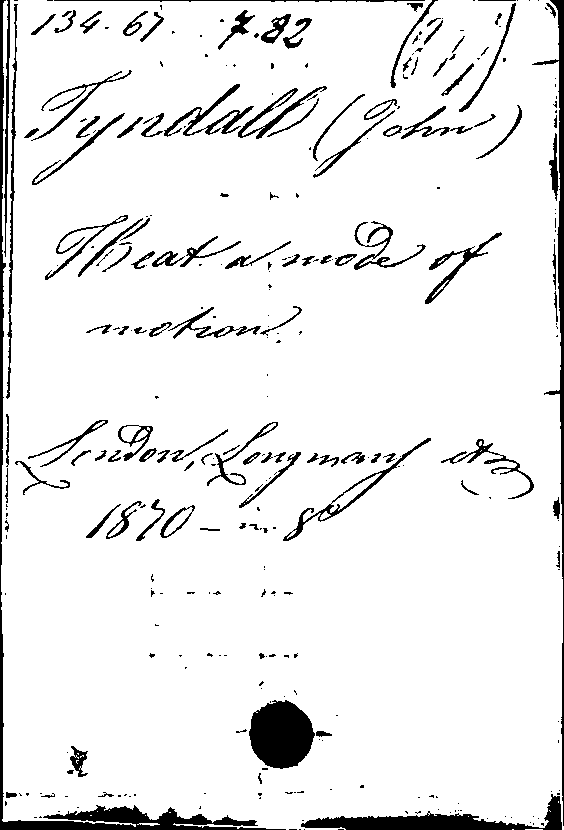 134.67. 7.82
Tyndall (John)
Heat a mode of
motion.
London, Longmans etc
1870 – in 8º